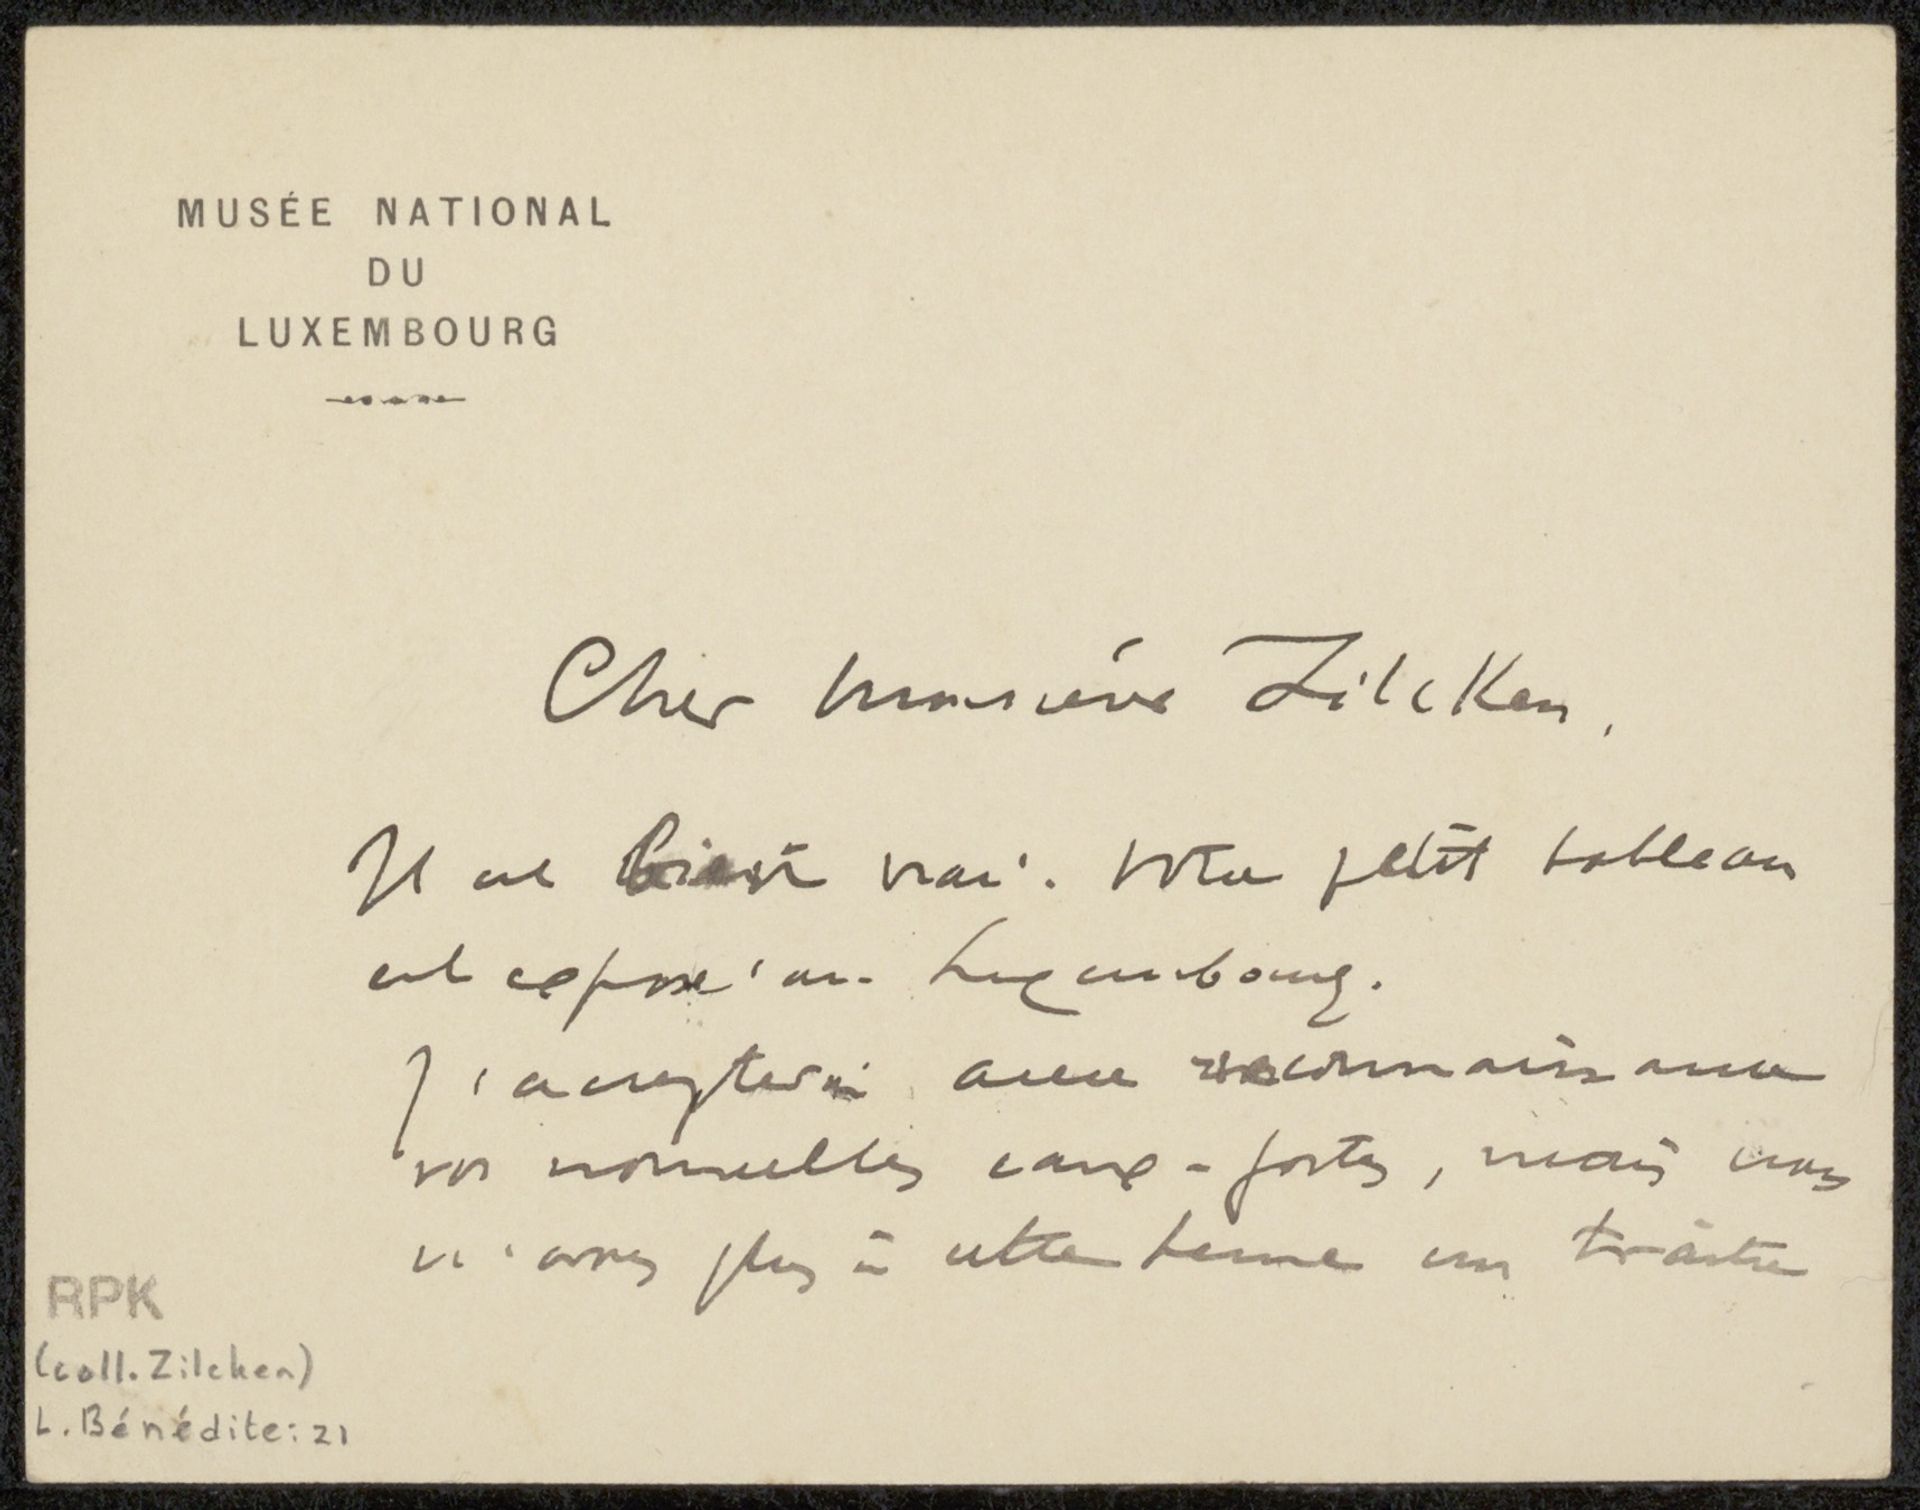 MUSÉE NATIONAL
DU
LUXEMBOURG
Cher Monsieur Zilcken,
Il est bien vrai. Votre petit tableau
est exposé au Luxembourg.
J'accepterai avec reconnaissance
vos nouvelles eaux-fortes, mais vous
n'avez plus à cette heure un
RPK
(coll. Zilcken)
L. Bénédite: 21